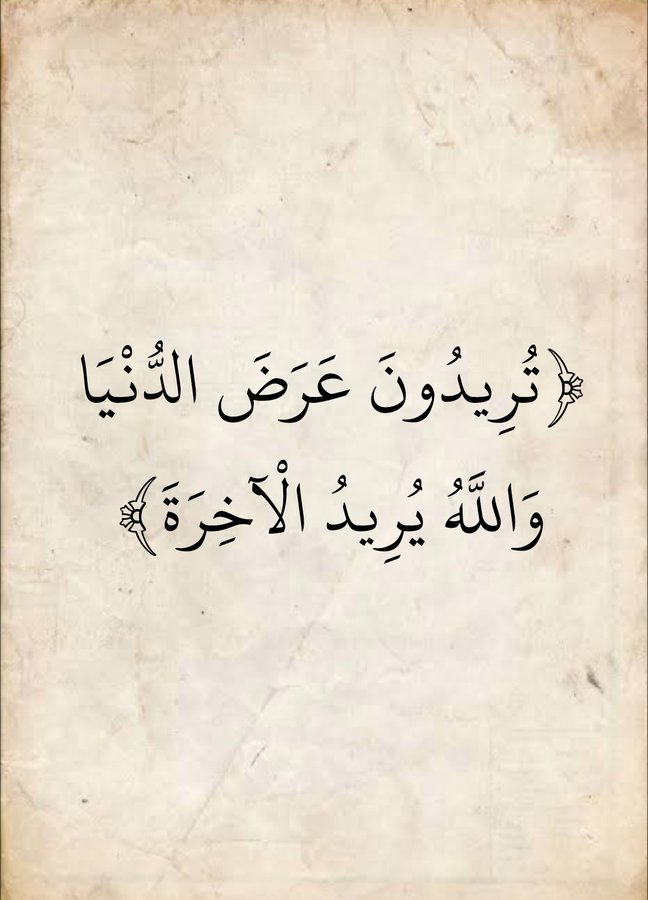 ﴿تُرِيدُونَ عَرَضَ الدُّنْيَا
وَاللَّهُ يُرِيدُ الْآخِرَةَ﴾